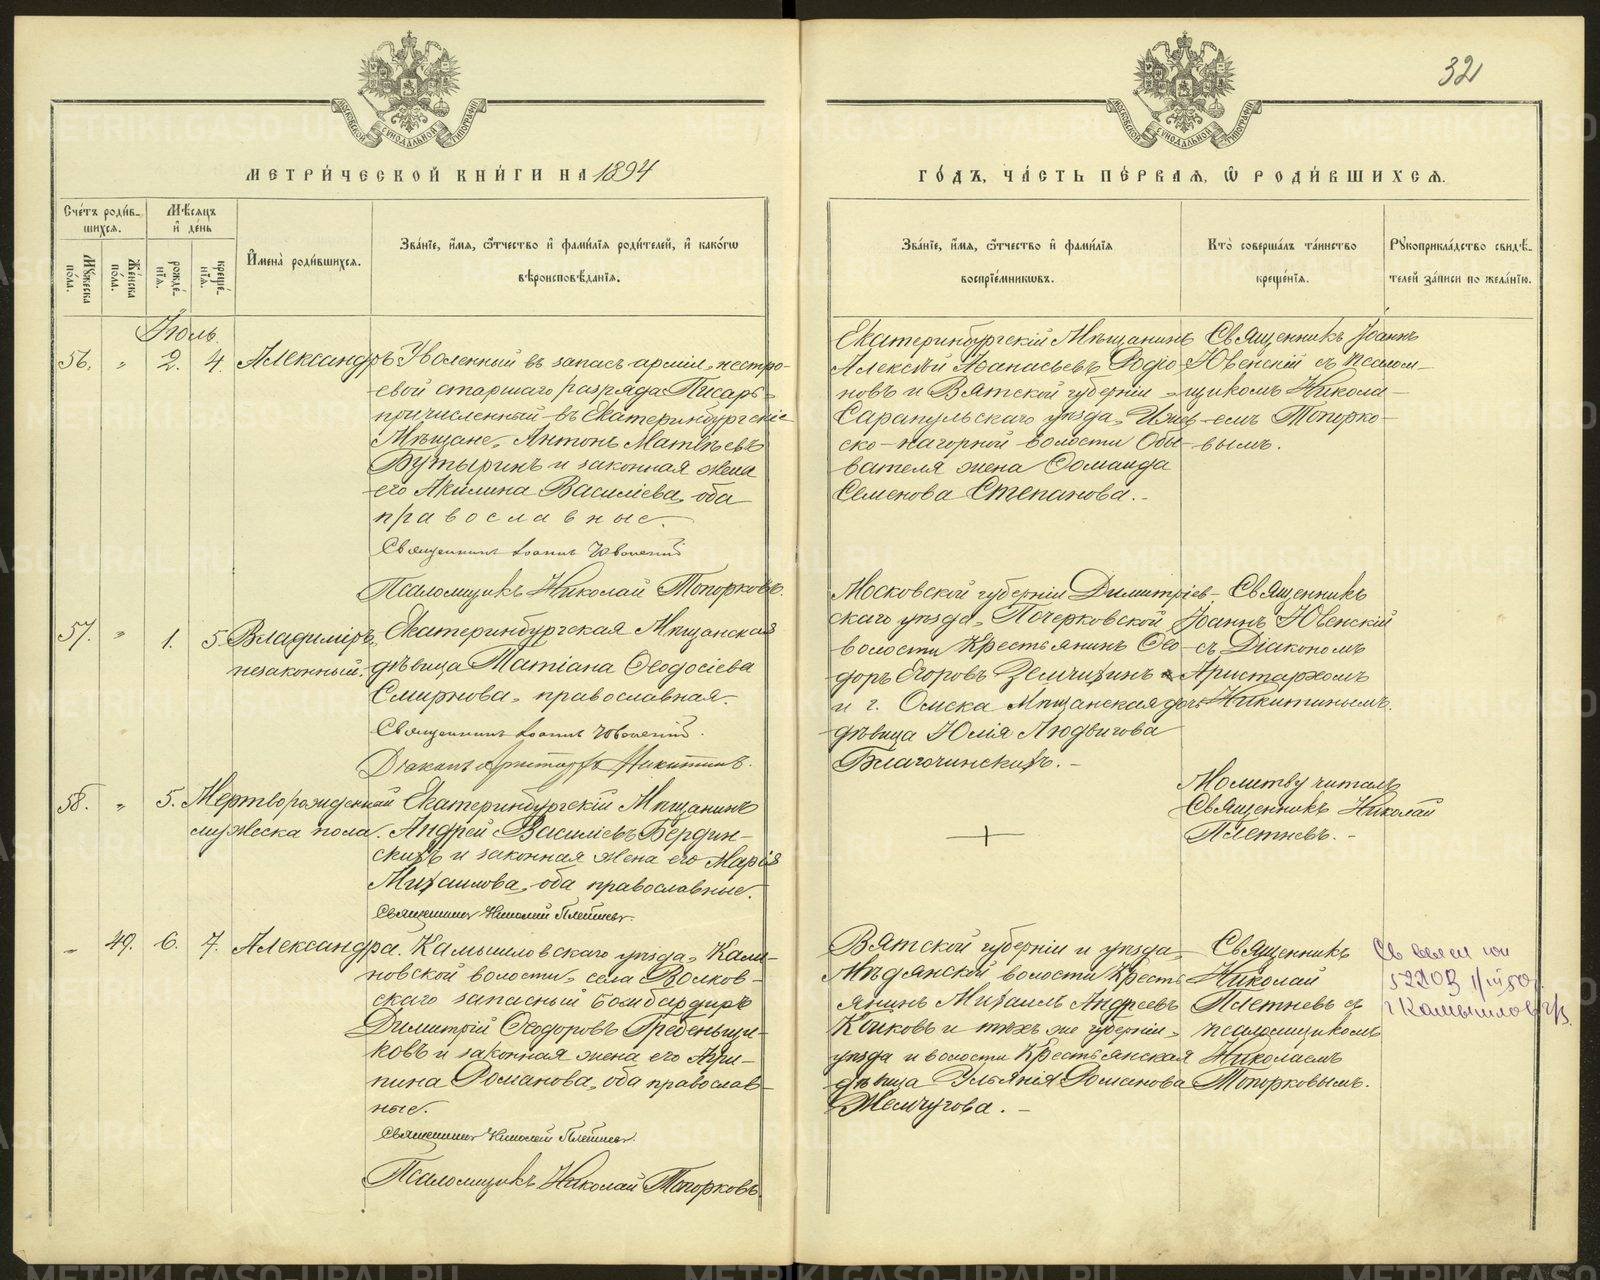 32
МОСКОВСКОЙ СУНОДАЛЬНОЙ ТИПОГРАФІИ
МОСКОВСКОЙ СУНОДАЛЬНОЙ ТИПОГРАФІИ
МЕТРИ́ЧЕСКОЙ КНИ́ГИ НА 1894
ГО́ДЪ, ЧА́СТЬ ПЕ́РВАЯ, Ѽ РОДИ́ВШИХСЯ.
Сче́тъ роди́в-
шихся.
Мѣ́сяцъ
и҆ де́нь
Му́жеска
по́ла.
Же́нска
по́ла.
рожде́-
нїѧ.
креще́-
нїѧ.
И҆мена̀ роди́вшихся.
Зва́нїе, и҆́мя, ѻ҆́тчество и҆ фами́лїя роди́телей, и҆ како́гѡ
вѣроисповѣ́данїя.
Зва́нїе, и҆́мя, ѻ҆́тчество и҆ фами́лїя
воспрїе́мникѡвъ.
Кто̀ соверша́лъ та́инство
креще́нїя.
Рꙋкоприкла́дство свидѣ́-
телей за́писи по жела́нїю.
Іюль.
56. " 2. 4. Александръ
Уволенный въ запасъ арміи, нестро-
евой старшаго разряда Писарь,
причисленный въ Екатеринбургскіе
Мѣщане, Антонъ Матвѣевъ
Бутыринъ и законная жена
его Акилина Василіева, оба
православные.
Священникъ Іоаннъ Ювенскій
Псаломщикъ Николай Топорковъ.
Екатеринбургскій Мѣщанинъ
Алексѣй Аѳанасьевъ Родіо-
новъ и Вятской губерніи
Сарапульскаго уѣзда, Ижев-
ско-нагорной волости Обы-
вателя жена Соломанида
Семенова Степанова.-
Священникъ Іоаннъ
Ювенскій съ псалом-
щикомъ Никола-
емъ Топорко-
вымъ.
57. " 1. 5. Владиміръ,
незаконный.
Екатеринбургская Мѣщанская
дѣвица Татіана Ѳеодосіева
Смирнова, православная.
Священникъ Іоаннъ Ювенскій.
Діаконъ Аристархъ Никитинъ.
Московской губерніи Димитріев-
скаго уѣзда, Почерковской
волости Крестьянинъ Ѳео-
доръ Егоровъ Землихинъ
и г. Омска Мѣщанская дочь
дѣвица Юлія Людвигова
Благочинскихъ.-
Священникъ
Іоаннъ Ювенскій
съ Діакономъ
Аристархомъ
Никитинымъ.
58. " 5. Мертворожденный
мужеска пола.
Екатеринбургскій Мѣщанинъ
Андрей Василіевъ Бердин-
скихъ и законная жена его Марія
Михаилова, оба православные.
Священникъ Николай Плетневъ.
Молитву читалъ
Священникъ Николай
Плетневъ.-
" 49. 6. 7. Александра.
Камышловскаго уѣзда, Кали-
новской волости, села Волков-
скаго запасный бомбардиръ
Димитрій Ѳеодоровъ Гребеньщи-
ковъ и законная жена его Агри-
пина Романова, оба православ-
ные.
Священникъ Николай Плетневъ.
Псаломщикъ Николай Топорковъ.
Вятской губерніи и уѣзда,
Мѣдянской волости Кресть-
янинъ Михаилъ Андреевъ
Койковъ и тѣхъ же губерніи,
уѣзда и волости Крестьянская
дѣвица Ульянія Романова
Жемчугова.-
Священникъ
Николай
Плетневъ съ
псаломщикомъ
Николаемъ
Топорковымъ.
г. Камышлов